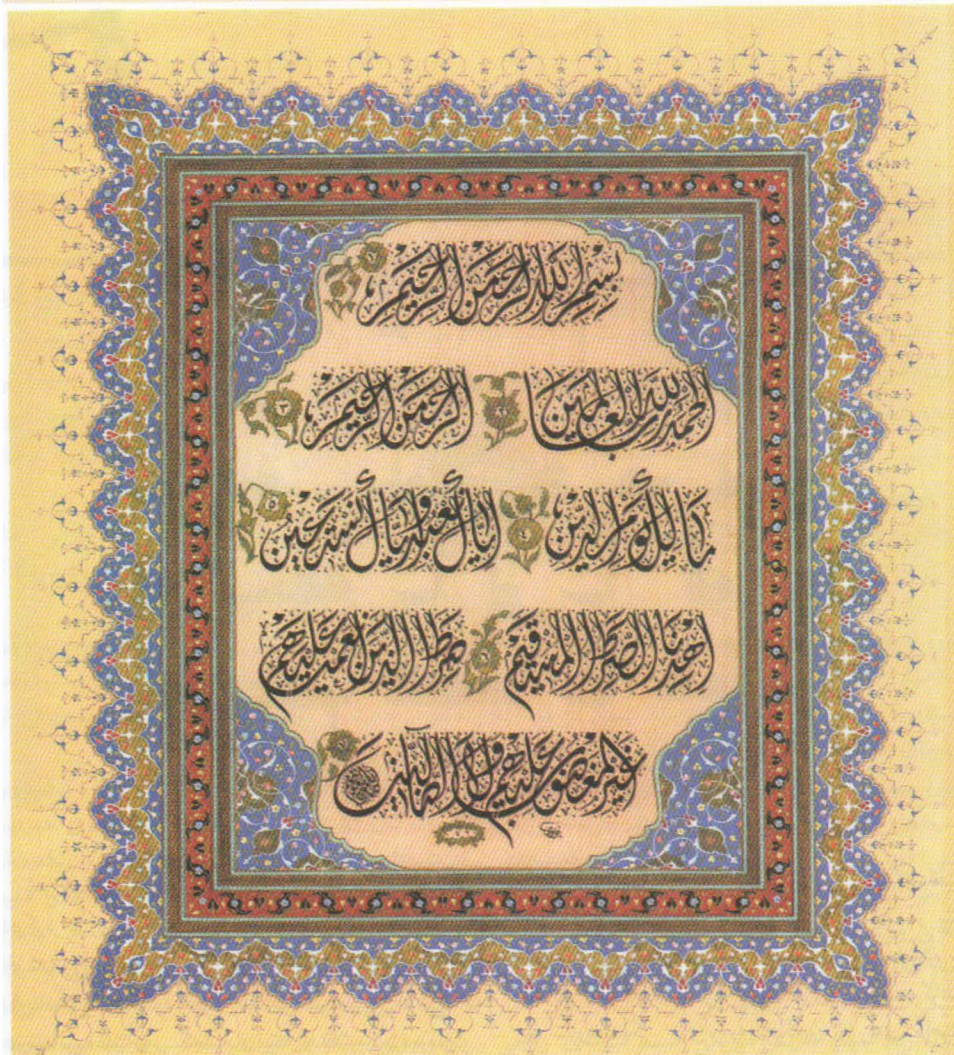 بِسْمِ اللهِ الرَّحْمٰنِ الرَّحِيمِ ١
الحمد لله رب العالمين ٢ الرحمن الرحيم ٣
مالك يوم الدين ٤ إياك نعبد وإياك نستعين ٥
اهدنا الصراط المستقيم ٦ صراط الذين أنعمت عليهم
غير المغضوب عليهم ولا الضالين ٧